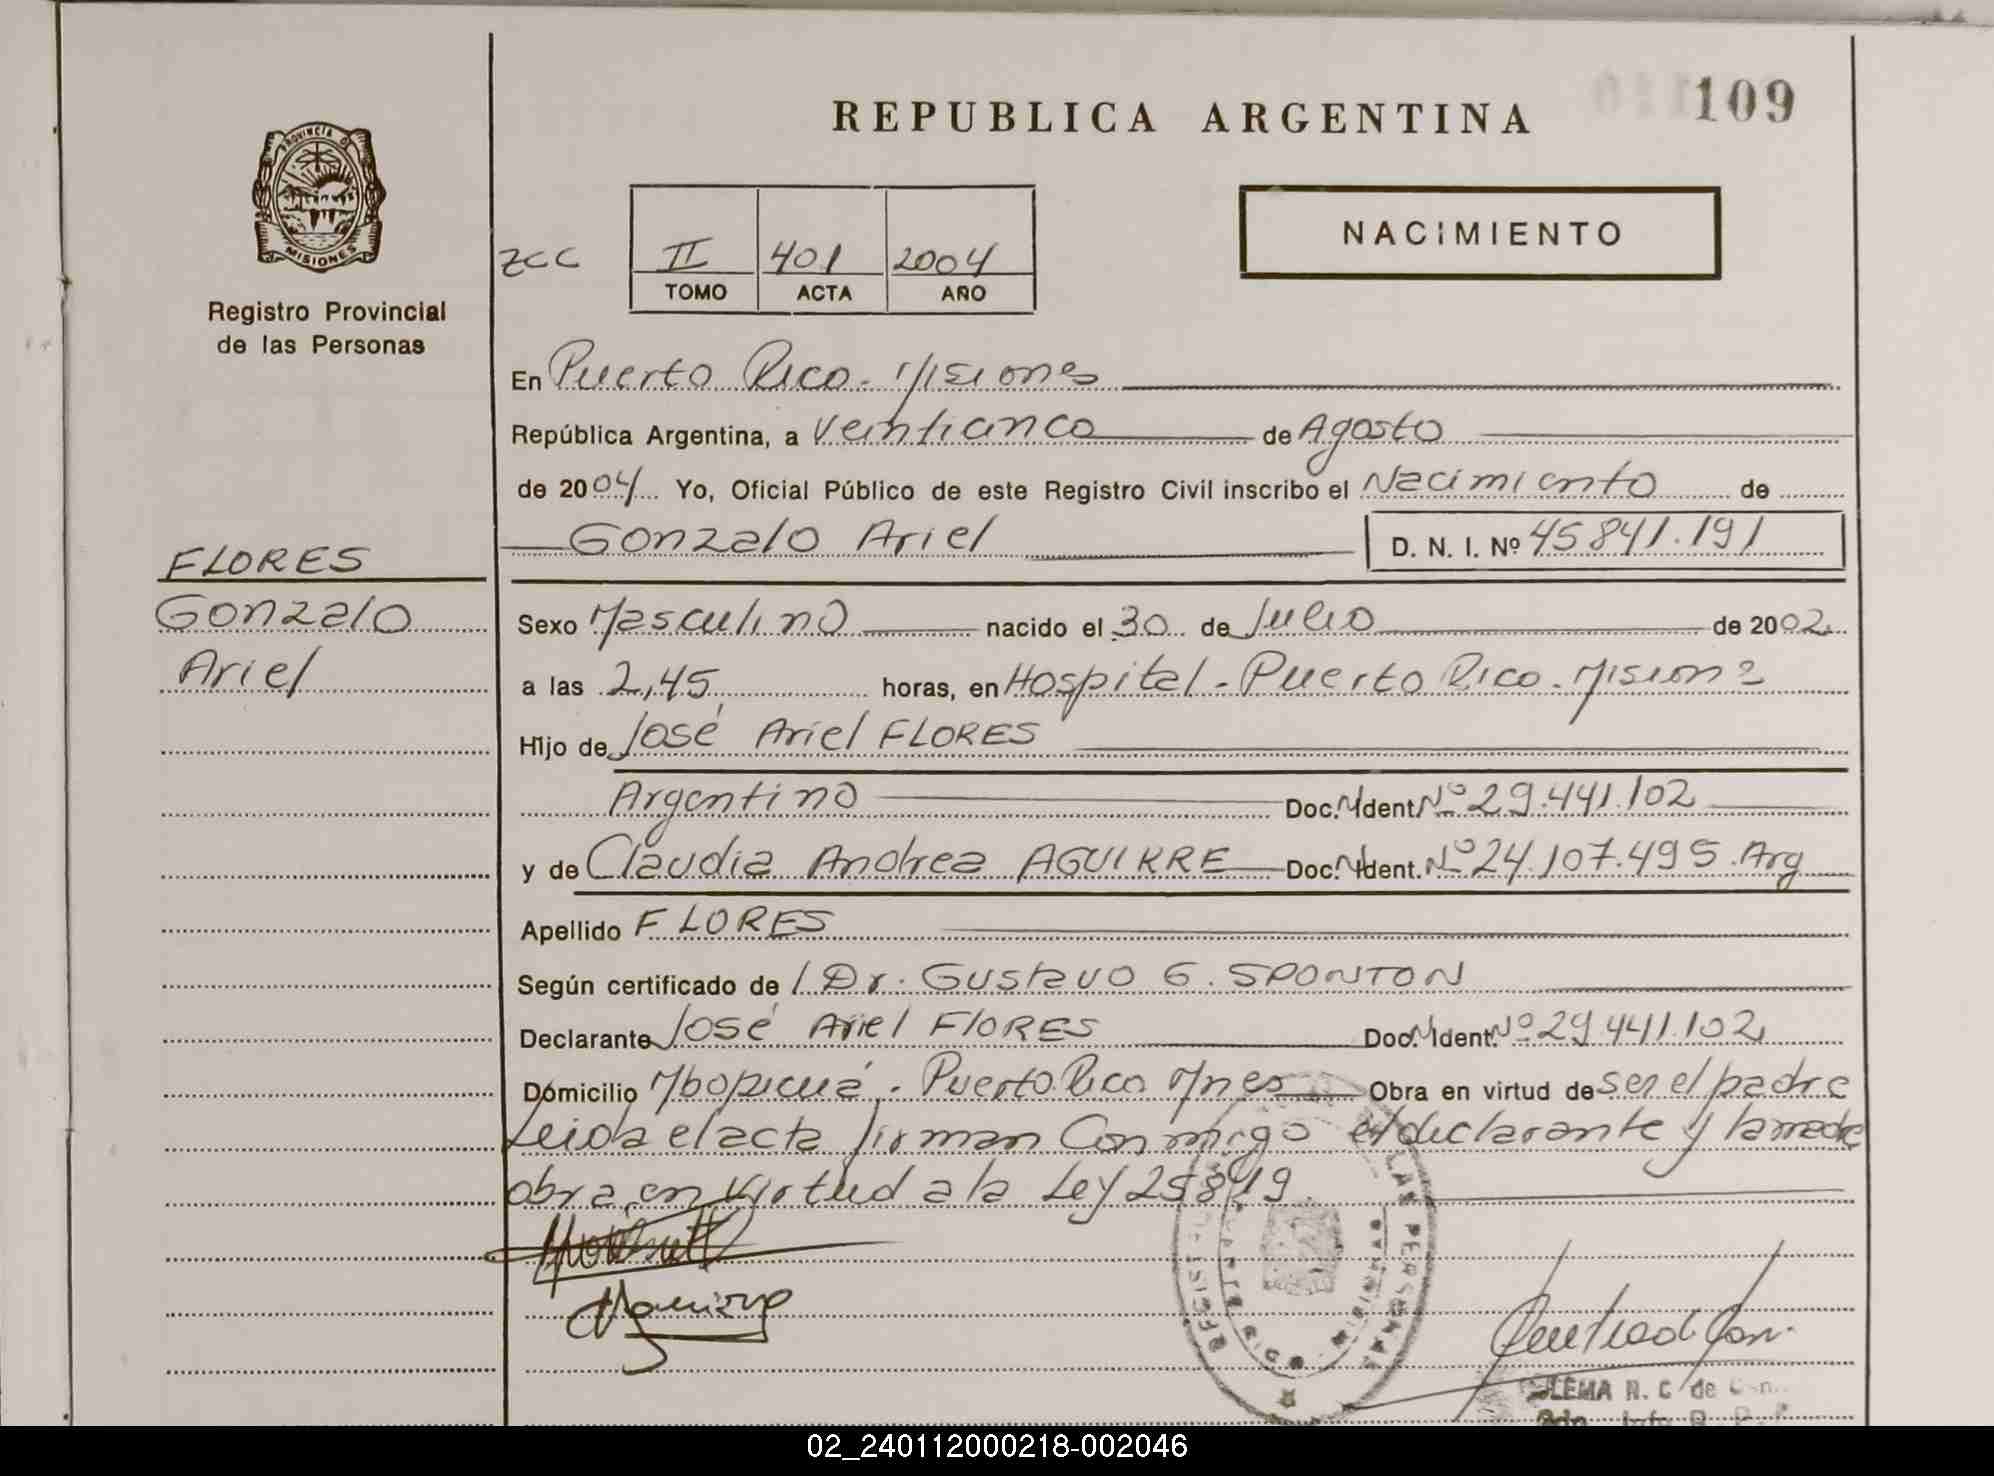 REPUBLICA ARGENTINA
109
PROVINCIA DE
MISIONES
Registro Provincial
de las Personas
ZCC
II 401 2004
TOMO ACTA AÑO
NACIMIENTO
En Puerto Rico. Misiones
República Argentina, a Veinticinco de Agosto
de 2004 Yo, Oficial Público de este Registro Civil inscribo el Nacimiento de
Gonzalo Ariel D. N. I. Nº 45841.191
FLORES
Gonzalo
Ariel
Sexo Masculino nacido el 30 de Julio de 2002
a las 2,45 horas, en Hospital - Puerto Rico. Misiones
Hijo de José Ariel FLORES
Argentino Doc. Ident. Nº 29.441.102
y de Claudia Andrea AGUIRRE Doc. Ident. Nº 24.107.495. Arg
Apellido FLORES
Según certificado de Dr. Gustavo G. SPONTON
Declarante José Ariel FLORES Doc. Ident. Nº 29.441.102
Domicilio Mbopicuá. Puerto Rico Mnes Obra en virtud de ser el padre
Leida el acta firman Conmigo el declarante y la madre
obra en virtud a la Ley 25819.
REGISTRO LAS PERSONAS
LEMA R. C de
02_240112000218-002046